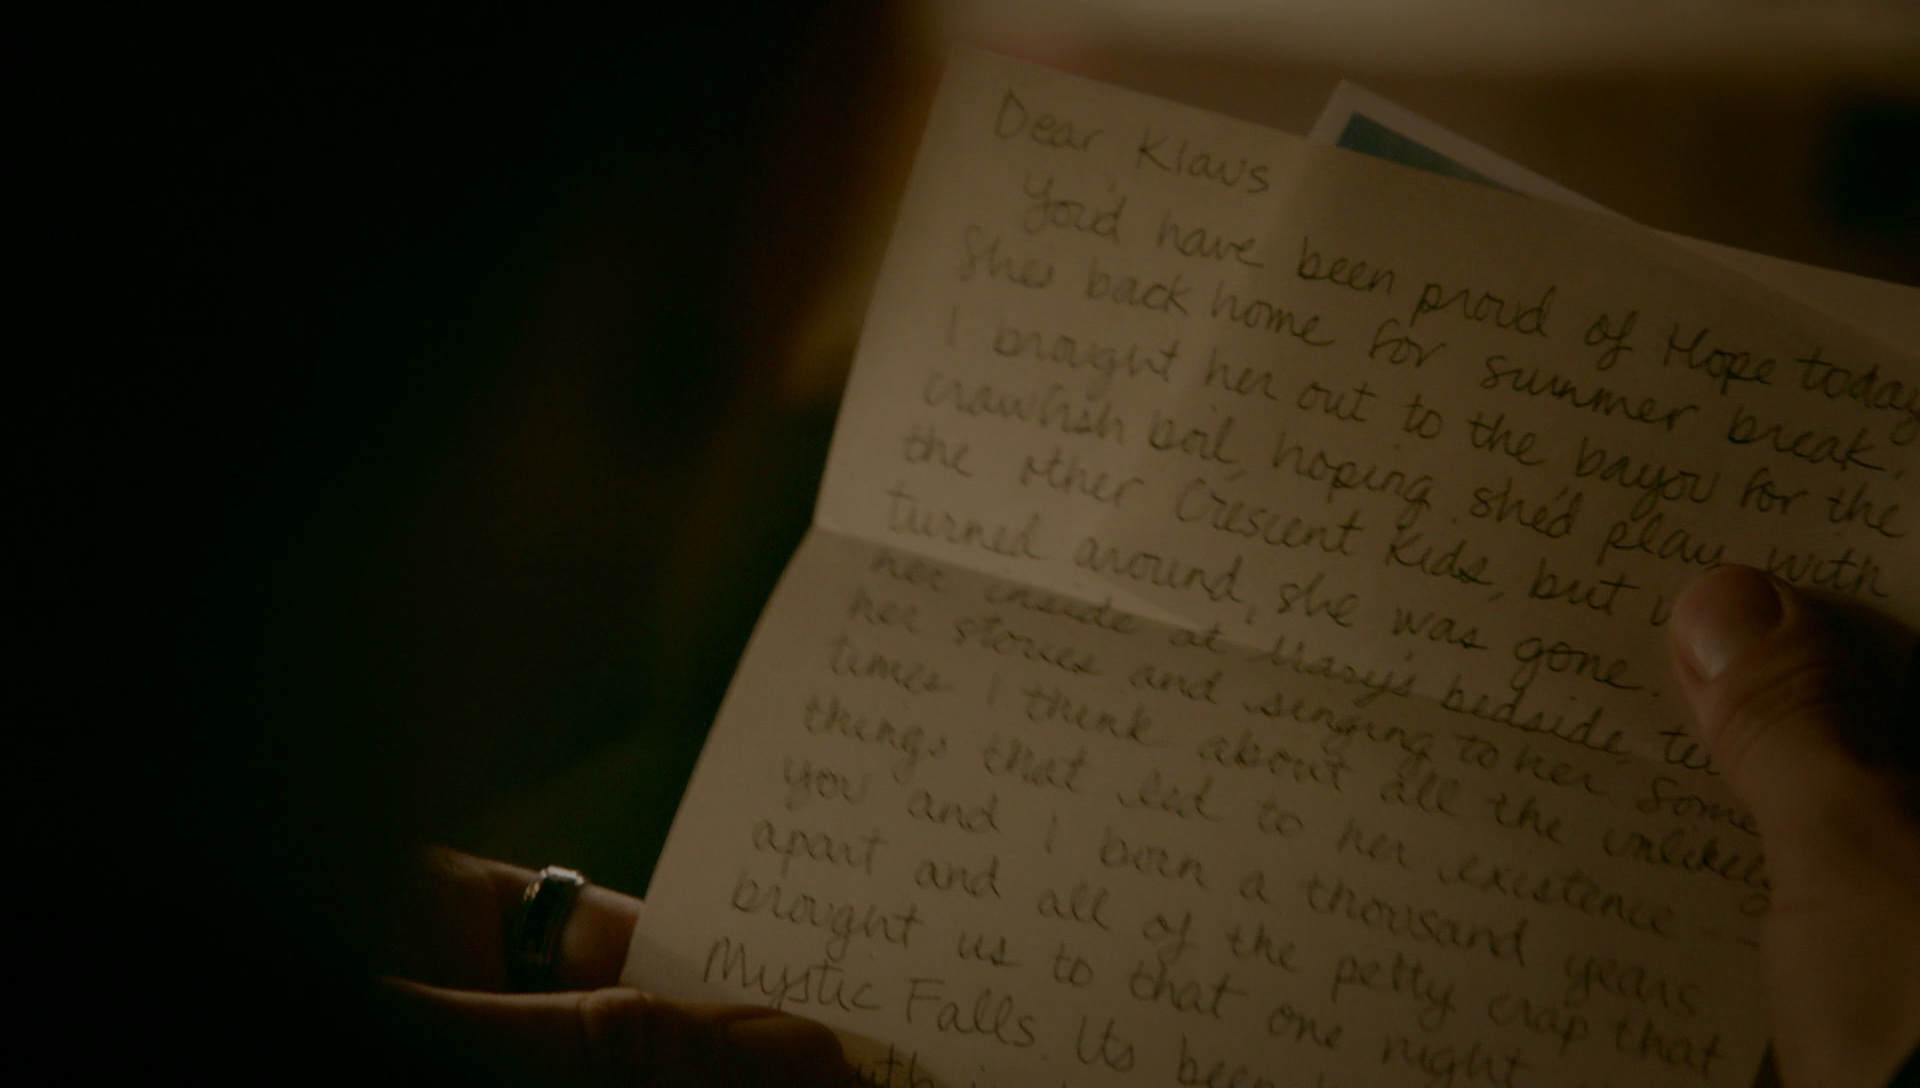 Dear Klaus
You'd have been proud of Hope today
She's back home for summer break.
I brought her out to the bayou for the
crawfish boil, hoping she'd play with
the other Crescent Kids, but
turned around, she was gone.
her inside at Mary's bedside,
her stories and singing to her. Some
times I think about all the unlikely
things that led to her existence --
you and I born a thousand years
apart and all of the petty crap that
brought us to that one night
Mystic Falls. Its been